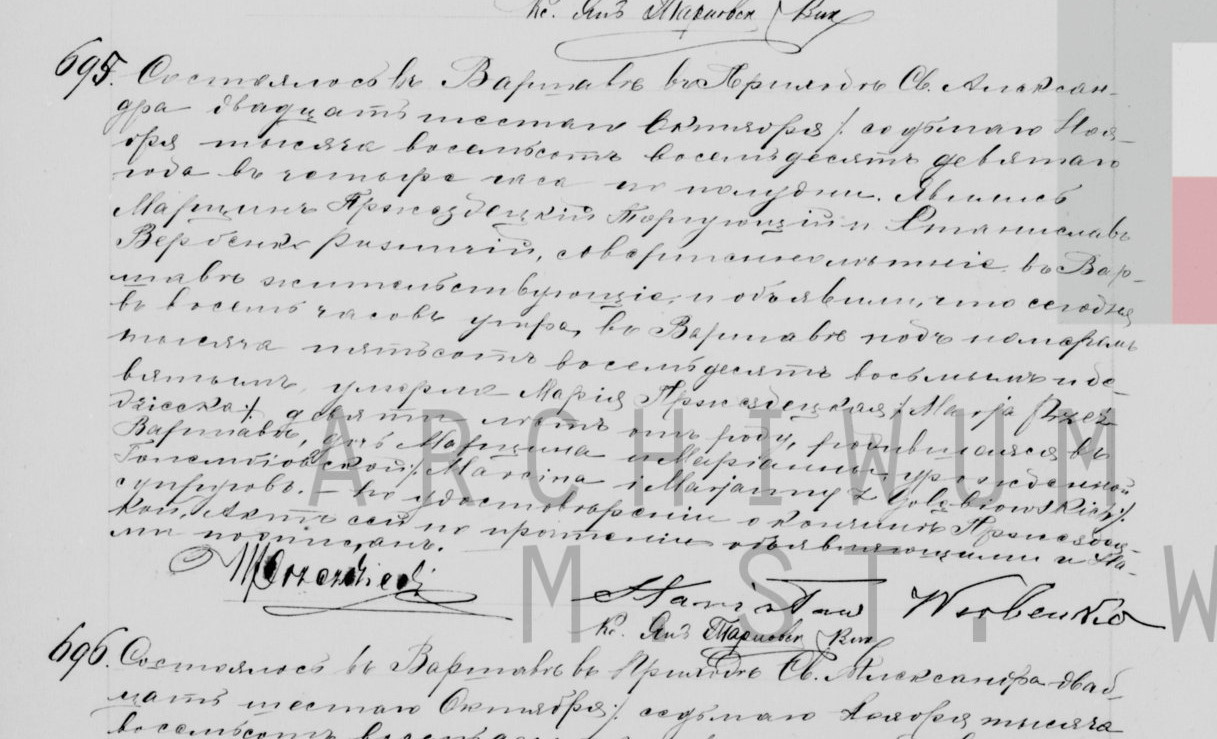 Кс. Янъ Тарновск / Вик
695. Состоялось въ Варшавѣ въ Приходѣ Св. Алексан-
дра двадцать шестаго Октября /: седьмаго Ноя-
бря тысяча восемьсотъ восемьдесятъ девятаго
года въ четыре часа по полудни. Явились
Марцинъ Пржездецкій Торгующій и Станиславъ
Вербенко совершеннолѣтніе въ Вар-
шавѣ жительствующіе, и объявили, что сегодня
въ восемь часовъ утра, въ Варшавѣ подъ номеромъ
тысяча пятьсотъ восемьдесятъ восьмымъ и де-
вятымъ, умерла Марія Пржездецкая /: Marja Przez
dziecka :/ девяти лѣтъ отъ роду, родившаяся въ
Варшавѣ, дочь Марцина и Маріанны урожденной
Голембіовской /: Marcina i Marjanny z Gołębiowskich :/
супруговъ. – По удостовѣреніи о кончинѣ Пржездец-
кой, Актъ сей по прочтеніи объявляющими и На-
ми подписанъ.
Stanisław Werbenko
Кс. Янъ Тарновск / Вик
696. Состоялось въ Варшавѣ въ Приходѣ Св. Александра двад-
цать шестаго Октября /: седьмаго Ноября тысяча
восемьсотъ
ARCHIWUM
M. ST. W